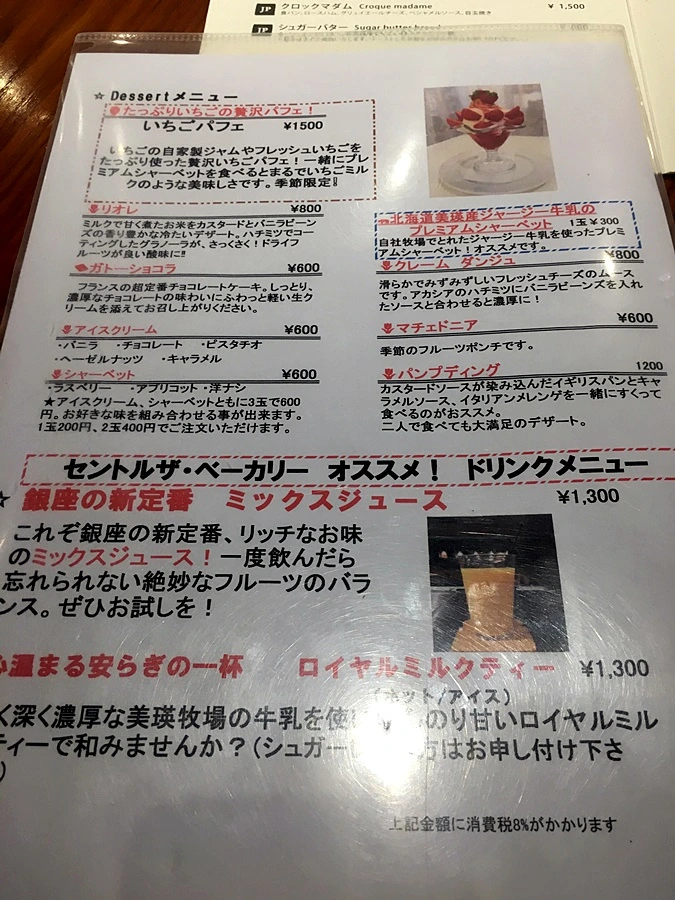 JP クロックマダム Croque madame ¥ 1,500
食パン、ロースハム、グリュイエールチーズ、ベシャメルソース、目玉焼き
JP シュガーバター Sugar butter
☆ Dessertメニュー
たっぷりいちごの贅沢パフェ！
いちごパフェ ¥1500
いちごの自家製ジャムやフレッシュいちごを
たっぷり使った贅沢いちごパフェ！一緒にプレ
ミアムシャーベットを食べるとまるでいちごミル
クのような美味しさです。季節限定!!
リオレ ¥800
ミルクで甘く煮たお米をカスタードとバニラビーン
ズの香り豊かな冷たいデザート。ハチミツでコー
ティングしたグラノーラが、さっくさく！ドライフ
ルーツが良い酸味に!!
ガトーショコラ ¥600
フランスの超定番チョコレートケーキ。しっとり、
濃厚なチョコレートの味わいにふわっと軽い生ク
リームを添えてお召し上がりください。
アイスクリーム ¥600
・バニラ ・チョコレート ・ピスタチオ
・ヘーゼルナッツ ・キャラメル
シャーベット ¥600
・ラズベリー ・アプリコット ・洋ナシ
★アイスクリーム、シャーベットともに3玉で600
円。お好きな味を組み合わせる事が出来ます。
1玉200円、2玉400円でご注文いただけます。
北海道美瑛産ジャージー牛乳の
プレミアムシャーベット 1玉¥300
自社牧場でとれたジャージー牛乳を使ったプレミ
アムシャーベット！オススメです。
クレーム ダンジュ ¥800
滑らかでみずみずしいフレッシュチーズのムース
です。アカシアのハチミツにバニラビーンズを入れ
たソースと合わせると濃厚に！
マチェドニア ¥600
季節のフルーツポンチです。
パンプディング 1200
カスタードソースが染み込んだイギリスパンとキャ
ラメルソース、イタリアンメレンゲを一緒にすくって
食べるのがおススメ。
二人で食べても大満足のデザート。
セントルザ・ベーカリー オススメ！ ドリンクメニュー
☆ 銀座の新定番 ミックスジュース ¥1,300
これぞ銀座の新定番、リッチなお味
のミックスジュース！一度飲んだら
忘れられない絶妙なフルーツのバラ
ンス。ぜひお試しを！
心温まる安らぎの一杯 ロイヤルミルクティー ¥1,300
(ホット/アイス)
く深く濃厚な美瑛牧場の牛乳を使 のり甘いロイヤルミル
ティーで和みませんか？(シュガー 方はお申し付け下さ
)
上記金額に消費税8%がかかります